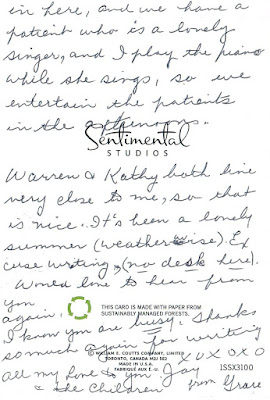 in here, and we have a
patient who is a lonely
singer, and I play the piano
while she sings, so we
entertain the patients
in the afternoons.
Sentimental
STUDIOS
Warren & Kathy both live
very close to me, so that
is nice. It's been a lonely
summer (weatherwise). Ex
cuse writing, (no desk here).
Would love to hear from
you
again.
THIS CARD IS MADE WITH PAPER FROM
SUSTAINABLY MANAGED FORESTS.
I know you are busy. Thanks
so much again for writing
© WILLIAM E. COUTTS COMPANY, LIMITED
TORONTO, CANADA M2J 1P6
MADE IN U.S.A.
FABRIQUÉ AUX É.-U.
1SSX3100
all my love to you Jay XOXOXO
& the children from Grace